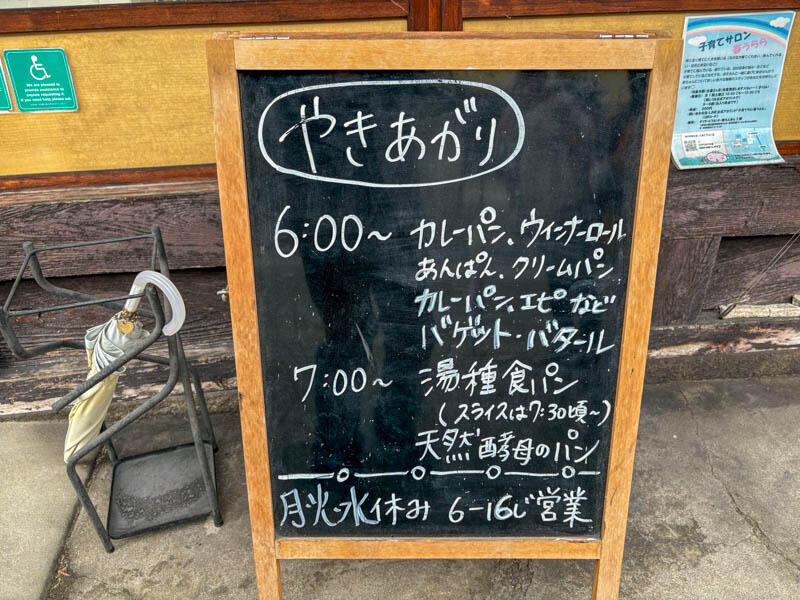 We are pleased to
provide assistance to
anyone requesting it
If you need help please ask
子育てサロン
春うらら
やきあがり
6:00～ カレーパン、ウィンナーロール
あんぱん、クリームパン
カレーパン、エピなど
バゲット・バタール
7:00～ 湯種食パン
(スライスは7:30頃～)
天然酵母のパン
月・火・水休み 6-16じ営業